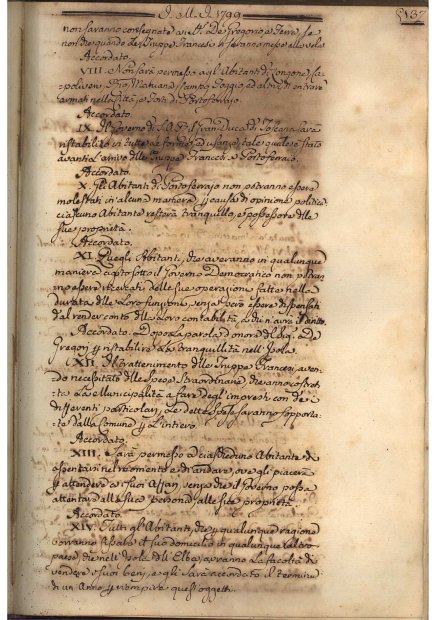 I. M. I. 1799
137
non saranno consegnate ai De Gregorio, e Ferro, se
non che quando le Truppe Francesi si saranno messe alla vela
Accordato.
VIII. Non sarà permesso agl'Abitanti di Longone, Ca-
poliveri, Rio, Marciana, Campo, Poggio, ed altri di entrare
armati nella Città, e Forti di Portoferrajo
Accordato.
IX. Il Governo di S. A. R. il Gran Duca di Toscana sarà
ristabilito in tutte le forme, ed usanze, tale quale è stato
avanti l'arrivo delle Truppe Francesi a Portoferraio.
Accordato.
X. Gli Abitanti di Portoferrajo non potranno essere
molestati in alcuna maniera p causa di opinione politica
ciascuno Abitante resterà tranquillo, e possessore delle
sue proprietà.
Accordato.
XI. Quegli Abitanti, che averanno in qualunque
maniera agito sotto il Governo Democratico non potran-
no essere ricercati delle sue operazioni fatte nella
durata delle Loro funzioni, senza però essere dispensati
dal render conto della Loro contabilità, a chi n'avrà il diritto.
Accordato. Dopo la parola d'onore del Sig. De
Gregorj p ristabilire la tranquillità nell'Isola.
XII. Il trattenimento delle Truppe Francesi, aven-
do necessitato delle spese straordinarie, che anno costret-
te la Municipalità a fare degl'imprestiti con dei
differenti particolari, Le dette spese saranno sopporta-
te dalla Comune p L'intiero.
Accordato.
XIII. Sarà permesso a ciascheduno Abitante di
essentarsi nel momento, e di andare, ove gli piacerà
p attendere a' suoi Affari, senza che il Governo possa
attentare alle sue persone, alle sue proprietà.
Accordato.
XIV. Tutti gl'Abitanti, che p qualunque ragione
vorranno fissare il suo domicilio in qualunque altro
paese, che nell'Isola dell'Elba, avranno la facoltà di
vendere i suoi beni, e gli sarà accordato il termine
di un Anno, p riempire questi oggetti.